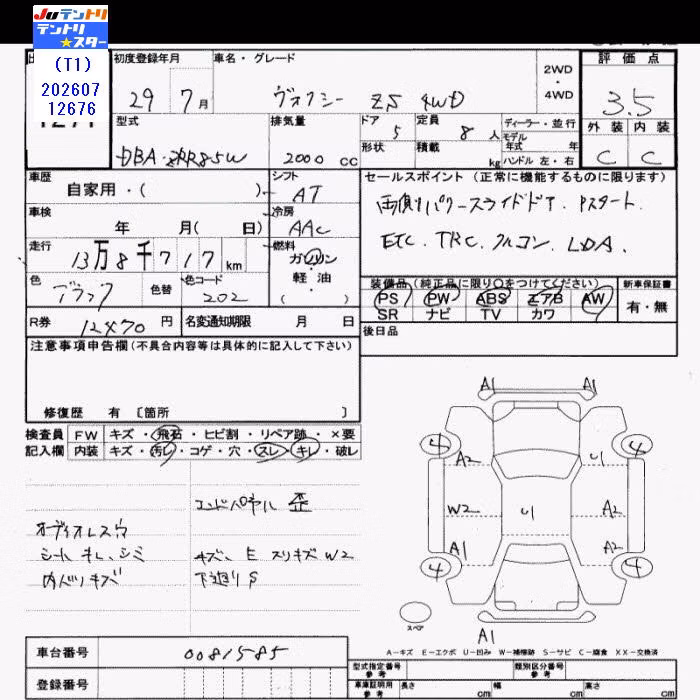 Juテントリ
テントリ
★スター
(T1)
202607
12676
初度登録年月
29年 7月
車名・グレード
ヴォクシー ZS 4WD
2WD
・
4WD
評価点
3.5
外装 内装
C C
型式
DBA-ZRR85W
排気量
2000 cc
ドア
5
形状
定員
8人
積載
kg
ディーラー・並行
モデル
年式 年
ハンドル 左・右
車歴
自家用・( )
シフト
AT
車検
年 月( 日)
冷房
AAC
走行
13万8千717km
燃料
ガソリン
・
軽油
( )
色
ブラック
色替
色コード
202
R券
12470円
名変通知期限 月 日
セールスポイント (正常に機能するものに限ります)
両側パワースライドドア. Pスタート.
ETC. TRC. クルコン. LDA.
装備品 (純正品に限り○をつけてください)
PS PW ABS エアB AW
SR ナビ TV カワ
新車保証書
有・無
後日品
注意事項申告欄 (不具合内容等は具体的に記入して下さい)
修復歴 有 〔箇所 〕
検査員
記入欄
FW キズ・飛石・ヒビ割・リペア跡・×要
内装 キズ・汚レ・コゲ・穴・スレ・キレ・破レ
エンドパネル 歪
オーディオレス
シート キレ、シミ
キズ、E スリキズ W2
内ハリキズ
下廻り S
A1 A1
4 4
A2 U
W2 U A2
A1 A2
4 4
A1
スペア
A-キズ E-エクボ U-凹み W-補修跡 S-サビ C-腐食 XX-交換済
車台番号 0081585
登録番号
型式指定番号
参考
類別区分番号
参考
車庫証明用
参考
長さ cm 幅 cm 高さ cm